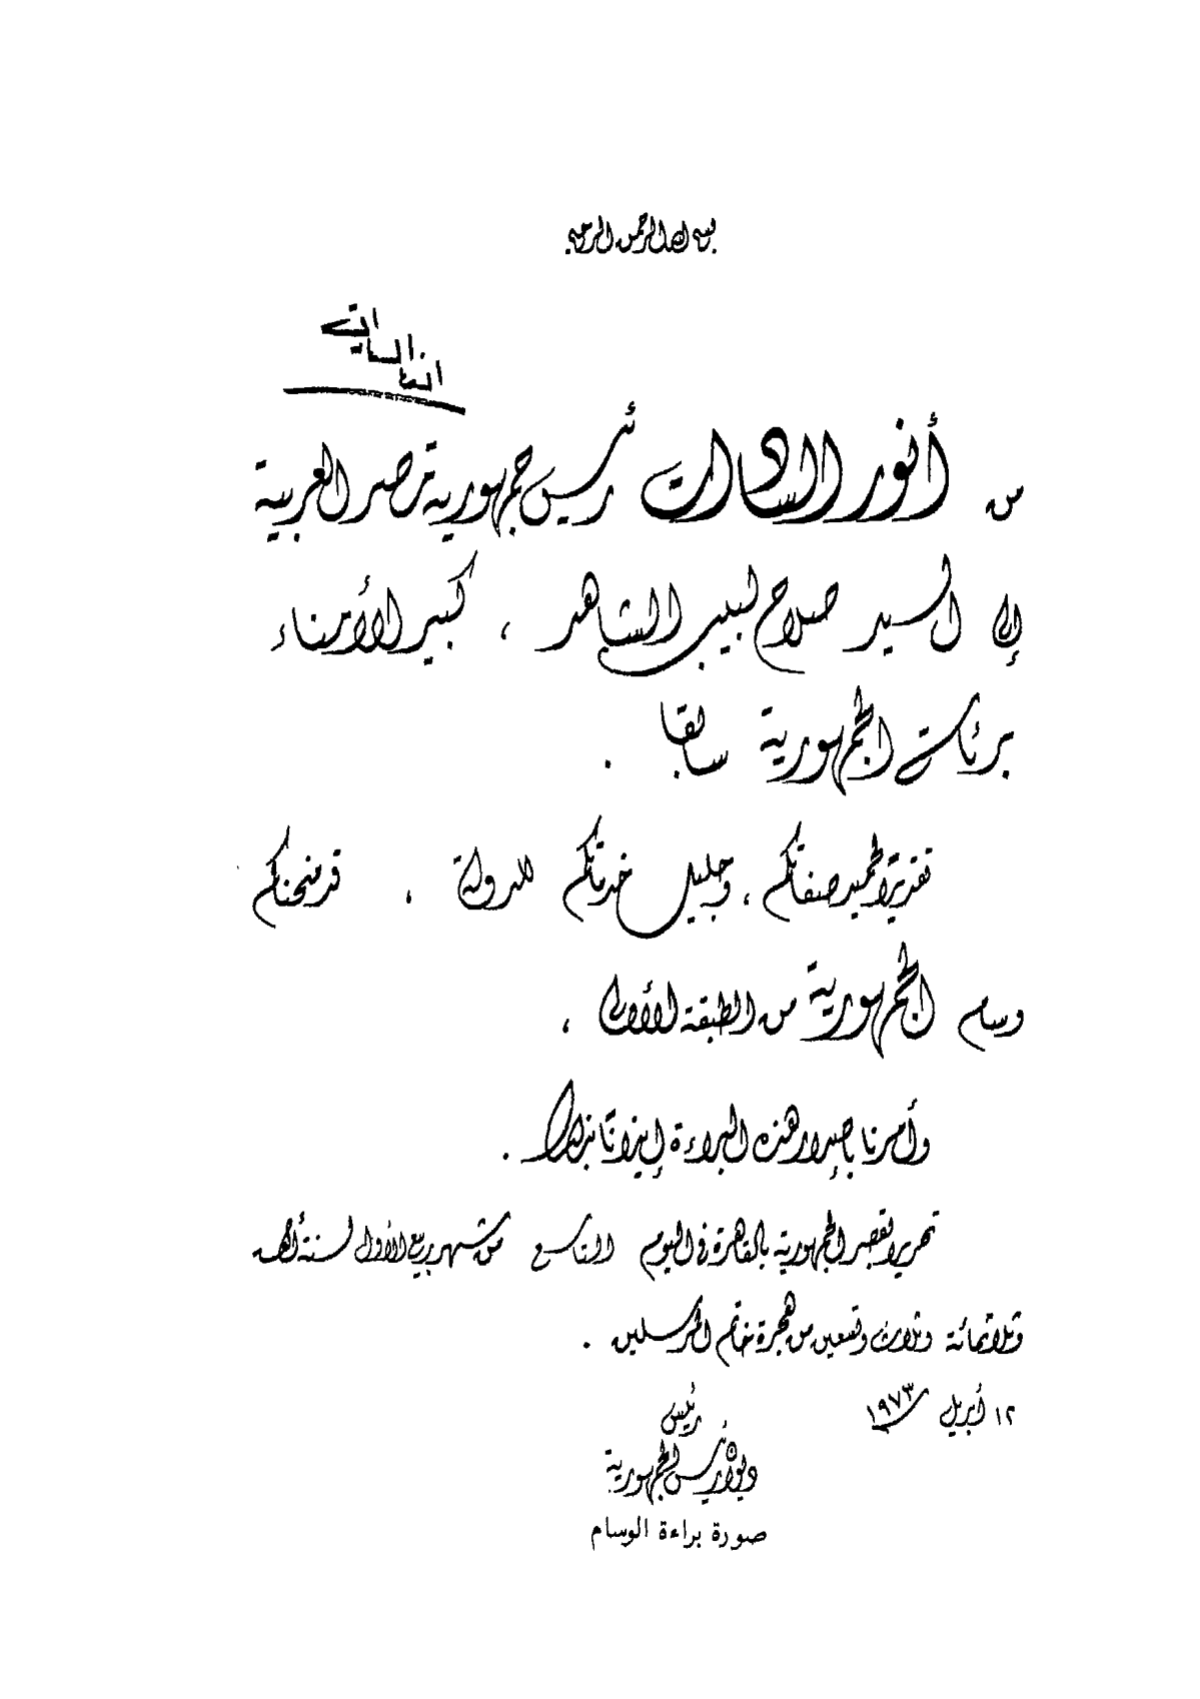 بسم الله الرحمن الرحيم
أنور السادات
من أنور السادات رئيس جمهورية مصر العربية
إلى السيد صلاح لبيب الشاهد ، كبير الأمناء
برئاسة الجمهورية سابقا .
تقديرًا لحميد صفاتكم ، وجليل خدماتكم للدولة ، قد منحناكم
وسام الجمهورية من الطبقة الأولى ،
وأمرنا بإصدار هذه البراءة إيذانًا بذلك .
تحريرا بقصر الجمهورية بالقاهرة فى اليوم التاسع من شهر ربيع الأول لسنة ألف
وثلاثمائة وثلاث وتسعين من هجرة خاتم المرسلين .
١٢ أبريل ١٩٧٣
رئيس
ديوان رئيس الجمهورية
صورة براءة الوسام